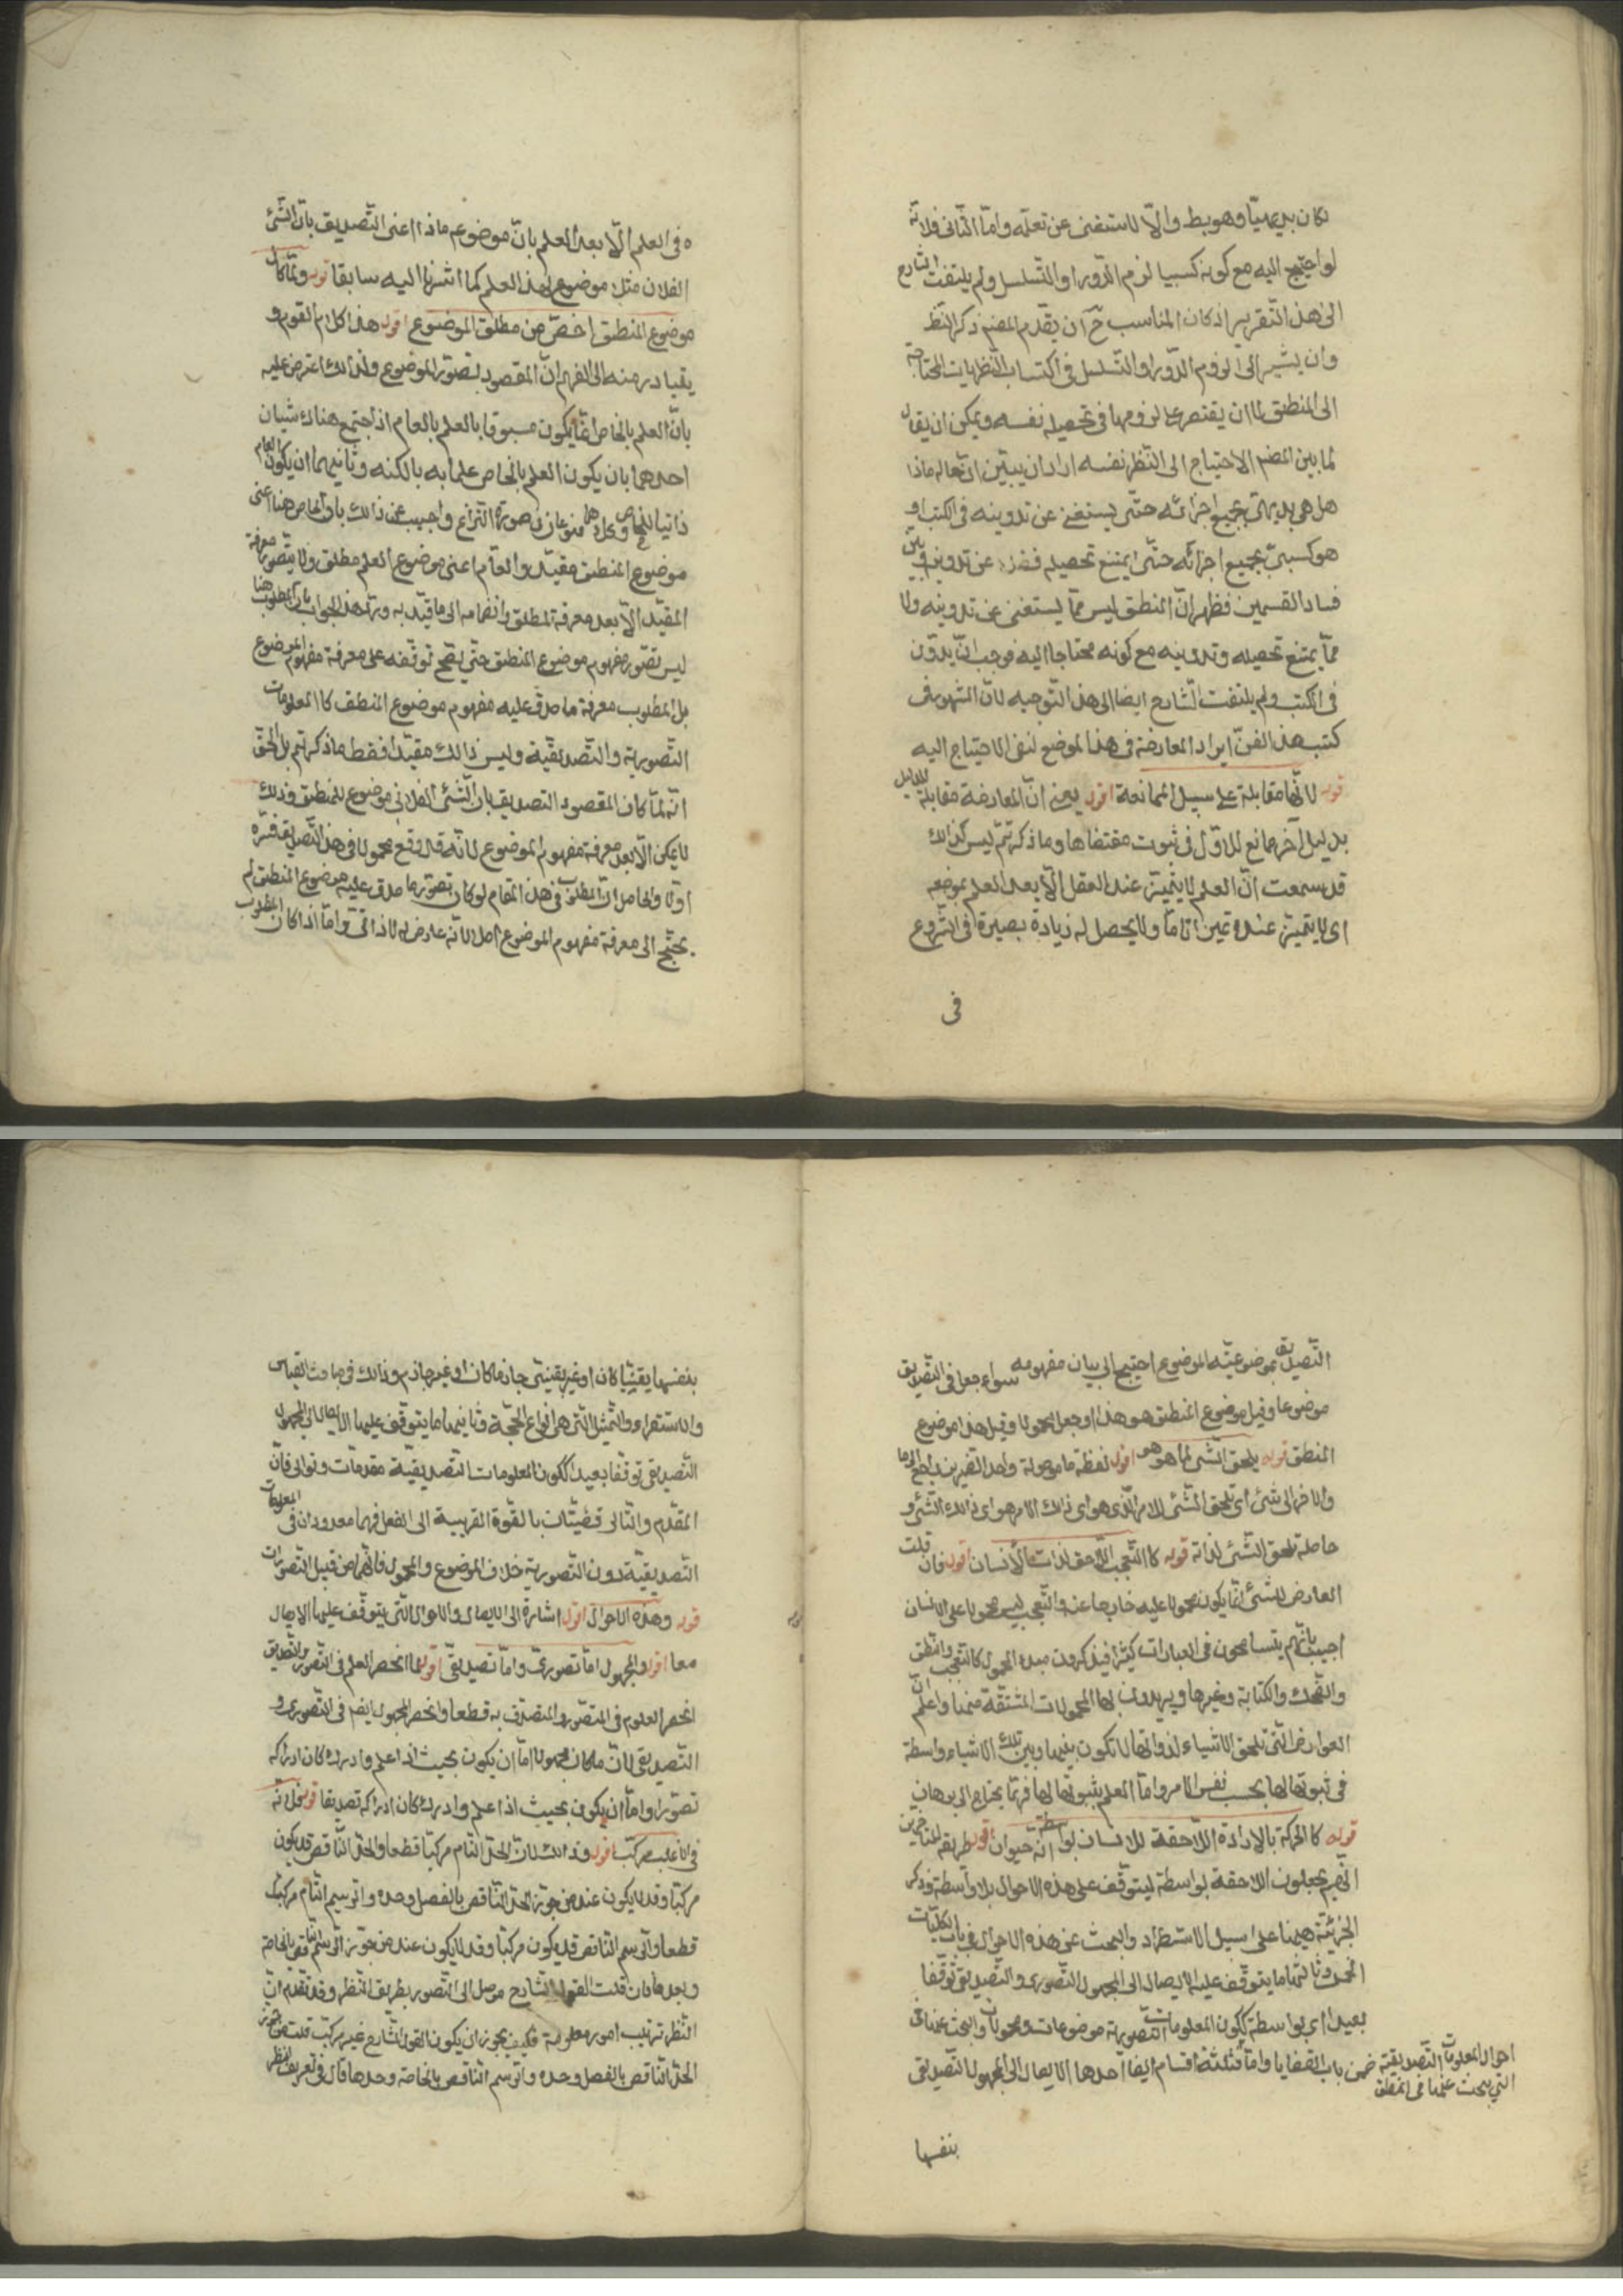 لكان بديهيا وهو بط والا لاستغنى عن تعلمه واما الثانى فلانه
لو احتيج اليه مع كونه كسبيا لزم الدور او التسلسل ولم يلتفت الشارح
الى هذا التقرير اذ كان المناسب ح ان يقدم المصنف ذكر النظر
وان يشير الى لزوم الدور او التسلسل فى اكتساب النظريات المحتاجة
الى المنطق لا ان يقتصر على لزومها فى تحصيله نفسه ويمكن ان يقال
لما بين المصنف الاحتياج الى النظر نفسه اراد ان يبين ان حاله ماذا
هل هى بديهى بجميع اجزائه حتى يستغنى عن تدوينه فى الكتب او
هو كسبى بجميع اجزائه حتى يمتنع تحصيله فضلا عن تدوينه فبين
فساد القسمين فظهر ان المنطق ليس مما يستغنى عن تدوينه ولا
مما يمتنع تحصيله وتدوينه مع كونه محتاجا اليه فوجب ان يدون
فى الكتب ولم يلتفت الشارح ايضا الى هذا التوجيه لان المشهور فى
كتب هذا الفن ايراد المعارضة فى هذا الموضع لنفى الاحتياج اليه
قوله لانها مقابلة على سبيل الممانعة اقول يعنى ان المعارضة مقابلة للدليل
بدليل آخر ممانع للاول فى ثبوت مقتضاها وما ذكرتم ليس كذلك
قد سمعت ان العلم لا يتميز عند العقل الا بعد العلم بموضوعه
اى لا يتميز عنده تميزا تاما ولا يحصل له زيادة بصيرة فى الشروع
فى
ه فى العلم الا بعد العلم بان موضوعه ماذا اعنى التصديق بان الشئ
الفلان مثلا موضوع لهذا العلم كما اشرنا اليه سابقا قوله ولما كان
موضوع المنطق اخص من مطلق الموضوع اقول هذا كلام القوم و
يتبادر منه الى الفهم ان المقصود تصور الموضوع ولذالك اعترض عليه
بان العلم بالخاص انما يكون مسبوقا بالعلم بالعام اذا اجتمع هناك شيئان
احدهما بان يكون العلم بالخاص علما به بالكنه وثانيهما ان يكون العام
ذاتيا للخاص وكلاهما ممنوعان فى صورة النزاع واجيب عن ذالك بان الخاص هنا اعنى
موضوع المنطق مقيد والعام اعنى موضوع العلم مطلق ولا يتصور معرفة
المقيد الا بعد معرفة المطلق وانضمامه الى ما قيد به ورد هذا الجواب بان المطلوب هنا
ليس تصور مفهوم موضوع المنطق حتى يصح توقفه على معرفة مفهوم الموضوع
بل المطلوب معرفة ما صدق عليه مفهوم موضوع المنطق كالمعلومات
التصورية والتصديقية وليس ذالك مقيدا فسقط ما ذكرتم بل الحق
انه لما كان المقصود التصديق بان الشئ الفلانى موضوع للمنطق وذلك
لا يمكن الا بعد معرفة مفهوم الموضوع لانه قد وقع محمولا فى هذا التصديق فسره
اولا والحاصل ان المطلوب فى هذا المقام لو كان تصور ما صدق عليه موضوع المنطق لم
يحتج الى معرفة مفهوم الموضوع اصلا لانه عارض له لا ذاتى واما اذا كان المطلوب
التصديق بموضوعية الموضوع احتيج الى بيان مفهومه سواء جعل فى التصديق
موضوعا وقيل موضوع المنطق هو هذا او جعل محمولا وقيل هذا موضوع
المنطق قوله يلحق الشئ لما هو هو اقول لفظة ما موصولة واحد الضميرين راجع الى ما
والاخر الى شئ اى تلحق الشئ للامر الذى هو اى ذلك الامر هو اى ذالك الشئ و
حاصله تلحق الشئ لذاته قوله كالتعجب اللاحق لذات الانسان اقول فان قلت
العارض للشئ انما يكون محمولا عليه خارجا عنه والتعجب ليس محمولا على الانسان
اجيب بانهم يتسامحون فى العبارات كثيرا فيذكرون مبدء المحمول كالتعجب والنطق
والضحك والكتابة وغيرها ويريدون بها المحمولات المشتقة منها واعلم ان
العوارض التى تلحق الاشياء لذواتها لا تكون بينها وبين تلك الاشياء واسطة
فى ثبوتها لها بحسب نفس الامر واما العلم بثبوتها لها فربما يحتاج الى برهان
قوله كالحركة بالارادة اللاحقة للانسان بواسطة انه حيوان اقول طريقة المتأخرين
انهم يجعلون اللاحقة بواسطة ليتوقف على هذه الاحوال بلا واسطة وذكر
الجزئية ههنا على سبيل الاستطراد والبحث عن هذه الاحوال فى باب الكليات
الخمس وثالثها ما يتوقف عليه الايصال الى المجهول التصورى والتصديقى توقفا
بعيدا اى بواسطة ككون المعلومات التصورية موضوعات ومحمولات والبحث عنها فى
ضمن باب القضايا واما فثلثة اقسام ايضا احدها الايصال الى المجهول التصديقى
احوال المعلومات التصديقية
التى يبحث عنها فى المنطق
بنفسها
بنفسها يقينيا كان او غير يقينى جازما كان او غير جازم وذالك فى مباحث القياس
والاستقراء والتمثيل التى هى انواع الحجة وثانيها ما يتوقف عليها الايصال الى المجهول
التصديقى توقفا بعيدا ككون المعلومات التصديقية مقدمات وتوالى فان
المقدم والتالى قضيتان بالقوة القريبة الى الفعل فهما معدودان فى المعلومات
التصديقية دون التصورية خلاف الموضوع والمحمول فانهما من قبيل التصورات
قوله وهذه الاحوال اقول اشارة الى الايصال والاحوال التى يتوقف عليها الايصال
معا اقول والمجهول اما تصورى واما تصديقى اقول لما انحصر العلم فى التصور والتصديق
انحصر العلوم فى المتصور والمتصدق به قطعا وانحصر المجهول ايضا فى التصورى و
التصديقى لان ما كان مجهولا اما ان يكون بحيث اذا علم وادرك كان ادراكه
تصورا واما ان يكون بحيث اذا علم وادرك كان ادراكه تصديقا قوله فلانه
فى الاغلب مركب اقول وذالك لان الحد التام مركبا قطعا والحد الناقص قد يكون
مركبا وقد لا يكون عند من جوز الحد الناقص بالفصل وحده والرسم التام مركب
قطعا والرسم الناقص قد يكون مركبا وقد لا يكون عند من جوز الرسم الناقص بالخاصة
وحدها فان قلت القول الشارح موصل الى التصور بطريق النظر وقد تقدم ان
النظر ترتيب امور معلومة فكيف يجوز ان يكون القول الشارح غير مركب قلت من جوز
الحد الناقص بالفصل وحده والرسم الناقص بالخاصة وحدها قال فى تعريف النظر